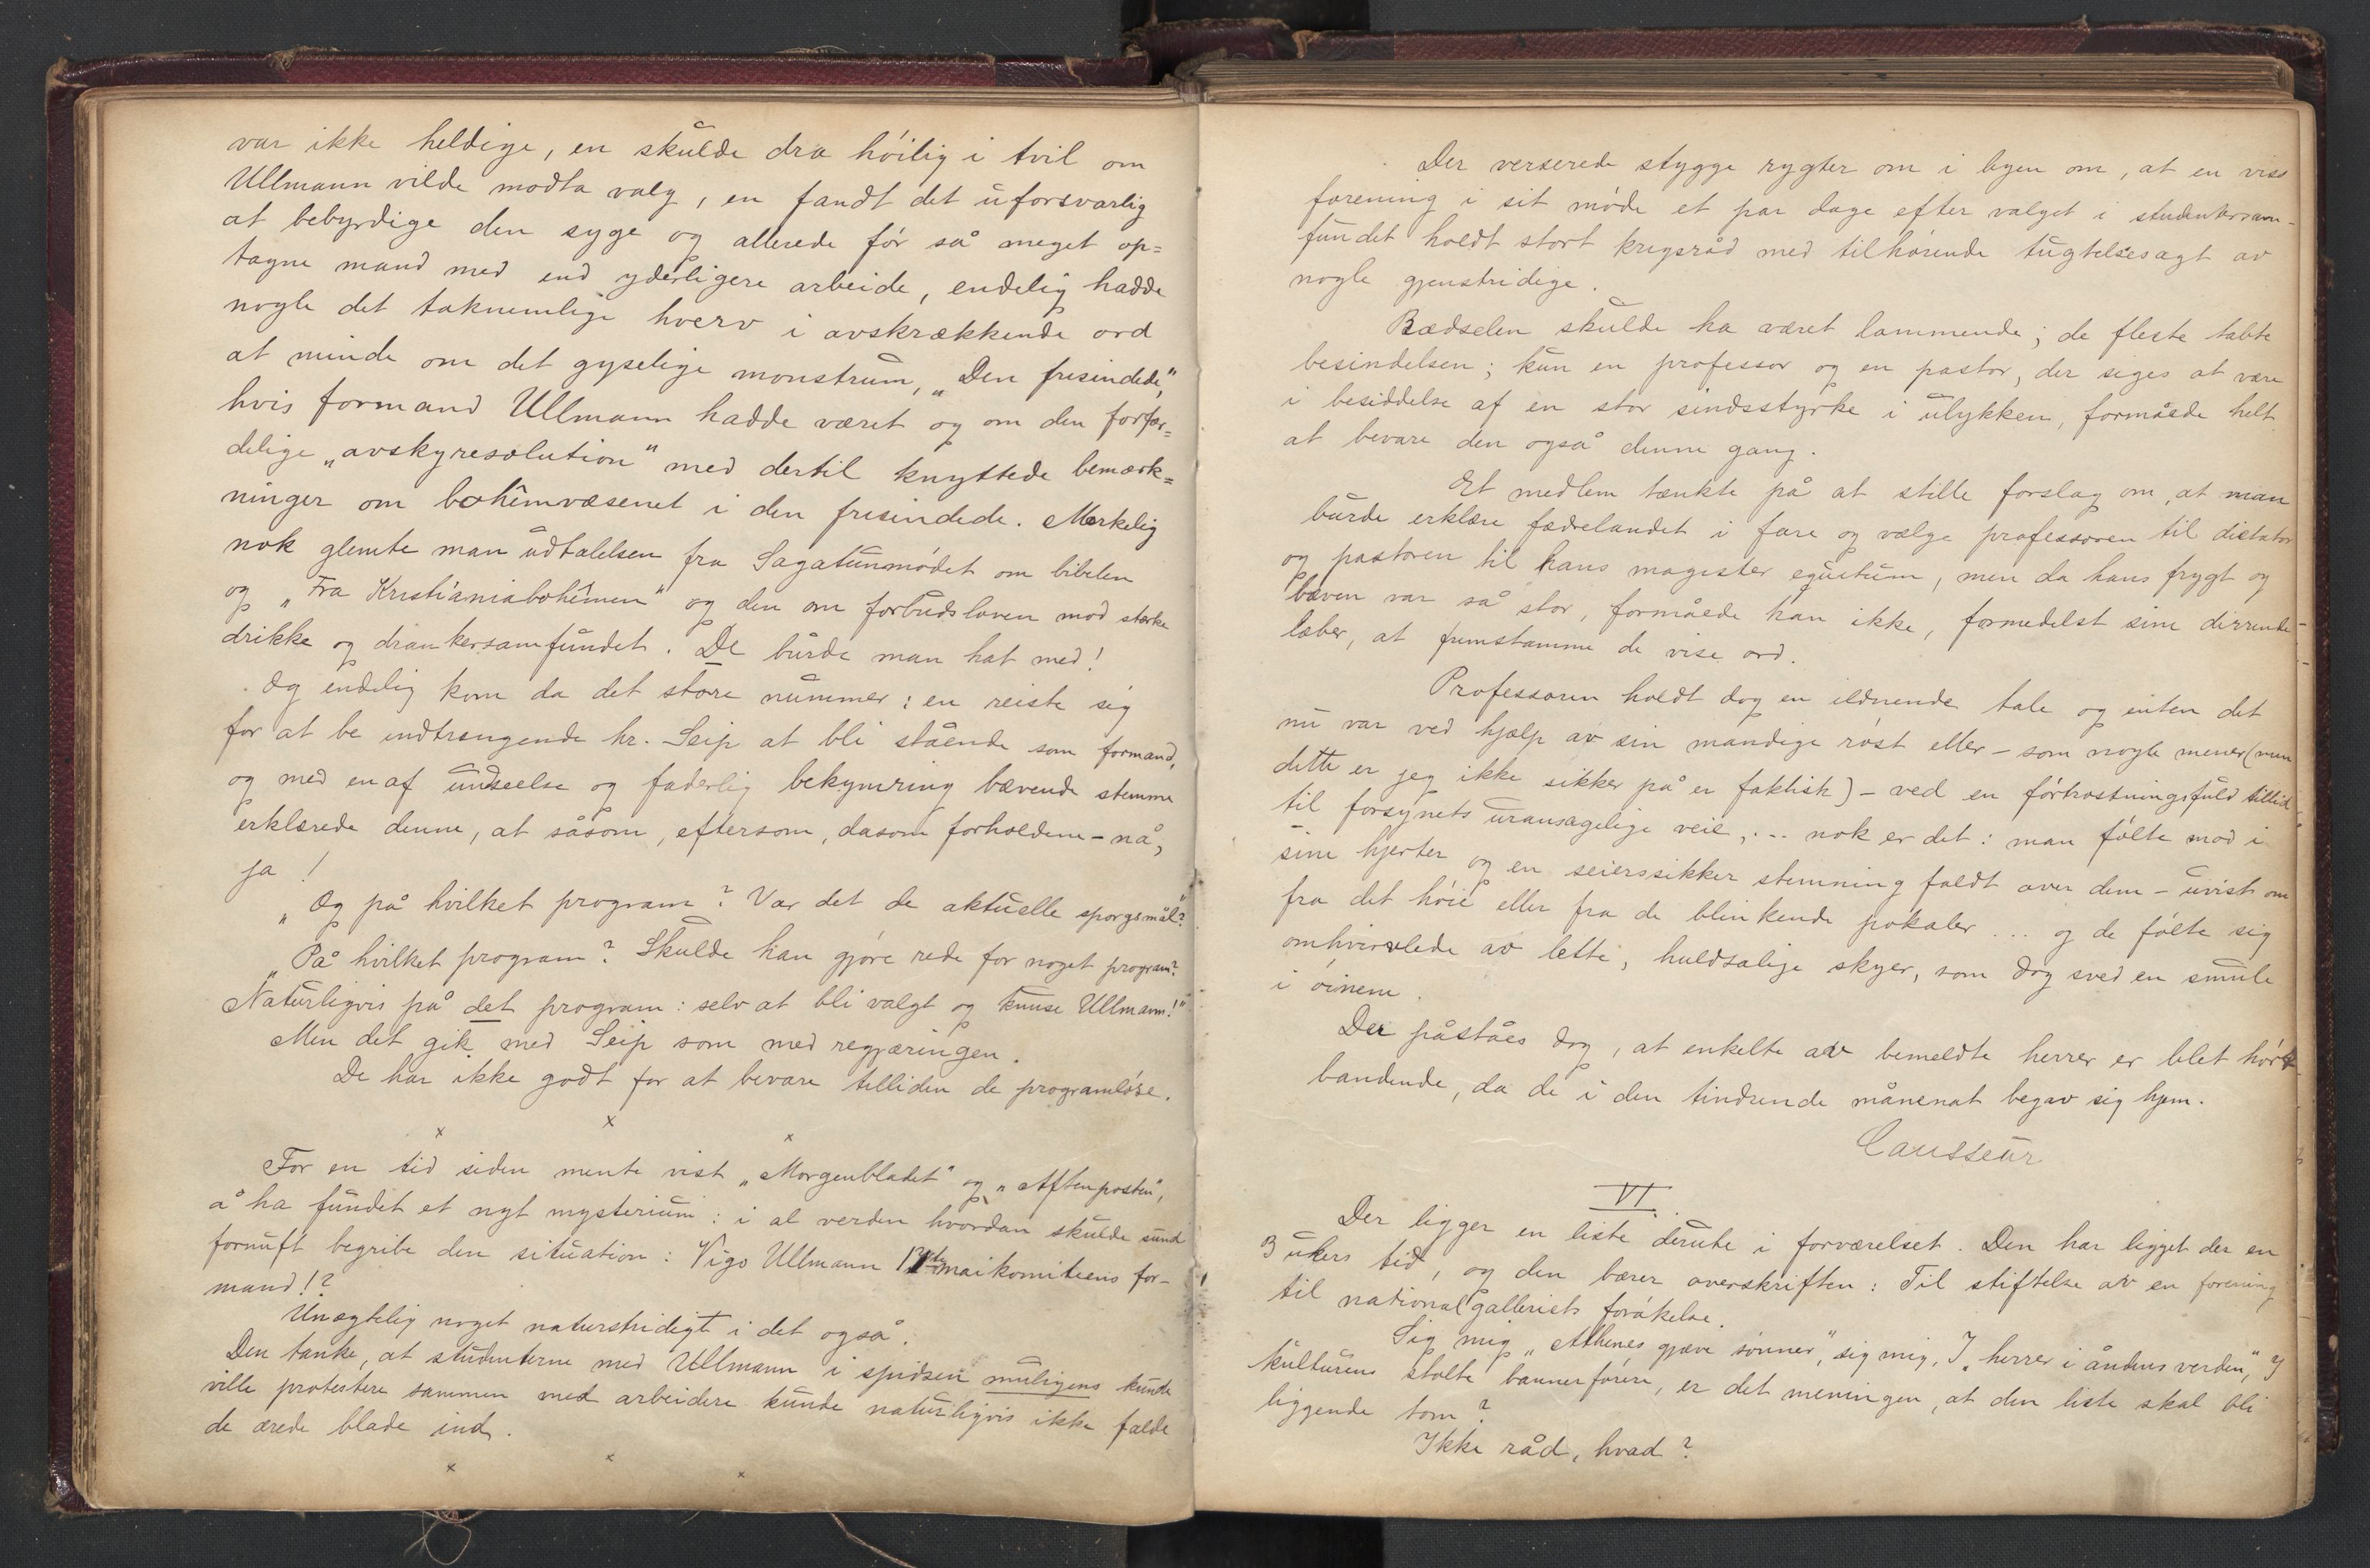 var ikke heldige, en skulde dra høilig i tvil om
Ullmann vilde modta valg, en fandt det uforsvarlig
at bebyrdige den syge og allerede før så meget op=
tagne mand med end yderligere arbeide, endelig hadde
nogle det taknemlige hverv i avskrækkende ord
at minde om det gyselige monstrum, „Den frisindede,"
hvis formand Ullmann hadde været og om den forfær=
delige „avskyresolution" med dertil knyttede bemærk=
ninger om bohêmvæsenet i den frisindede. Merkelig
nok glemte man udtalelsen fra Sagatunmødet om bibelen
og „Fra Kristianiabohêmen" og den om forbudsloven mod sterke
drikke og drankersamfundet. De burde man hat med!
Og endelig kom da det store nummer: en reiste sig
for at be indtrængende hr. Seip at bli stående som formand,
og med en af undseelse og faderlig bekymring bævende stemme
erklærede denne, at såsom, eftersom, dasom forholdene – nå,
ja!
„Og på hvilket program? Var det de aktuelle spørgsmål?"
„På hvilket program? Skulde han gjøre rede for noget program?
Naturligvis på det program: selv at bli valgt og knuse Ullmann!"
Men det gik med Seip som med regjæringen.
De har ikke godt for at bevare tilliden de programløse.
x x x
For en tid siden mente vist „Morgenbladet" og „Aftenposten",
å ha fundet et nyt mysterium: i al verden hvordan skulde sund
fornuft begribe den situation: Vigo Ullmann 17de maikomiteens for-
mand!?
Unægtelig noget naturstridigt i det også.
Den tanke, at studenterne med Ullmann i spidsen muligens kunde
ville protestere sammen med arbeidere kunde naturligvis ikke falde
de ærede blade ind.
x x x
Der verserede stygge rygter om i byen om, at en viss
forening i sit møde et par dage efter valget i studentersam-
fundet holdt stort krigsråd med tilhørende tugtelsesagt av
nogle gjenstridige.
Rædselen skulde ha været lammende; de fleste tabte
besindelsen; kun en professor og en pastor, der siges at være
i besiddelse af en stor sindsstyrke i ulykken, formåede helt
at bevare den også denne gang.
Et medlem tænkte på at stille forslag om, at man
burde erklære fædrelandet i fare og vælge professoren til dictator
og pastoren til hans magister equitum, men da hans frygt og
bæven var så stor, formåede han ikke, formedelst sine dirrende
læber, at fremstamme de vise ord.
Professoren holdt dog en ildnende tale og enten det
nu var ved hjælp av sin mandige røst eller – som nogle mener (men
dette er jeg ikke sikker på er faktisk) – ved en fortrøstningsfuld tillid
til forsynets uransagelige veie, ... nok er det: man følte mod i
sine hjerter og en seierssikker stemning faldt over dem – uvist om
fra det høie eller fra de blinkende pokaler ... og de følte sig
omhvirvlede av lette, huldsalige skyer, som dog sved en smule
i øinene.
Der påståes dog, at enkelte av bemeldte herrer er blet hørt
bandende, da de i den tindrende månenat begav sig hjem.
Causseur
VI.
Der ligger en liste derute i forværelset. Den har ligget der en
3 ukers tid, og den bærer overskriften: Til stiftelse av en forening
til nationalgalleriets forøkelse.
Sig mig „Athenes gjæve sønner", sig mig, I „herrer i åndens verden", I
kulturens stolte bannerførere, er det meningen, at den liste skal bli
liggende tom?
Ikke råd, hvad?